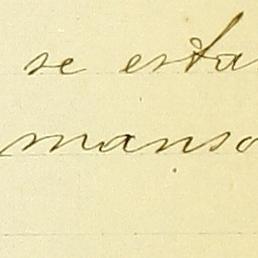 se esta
manso